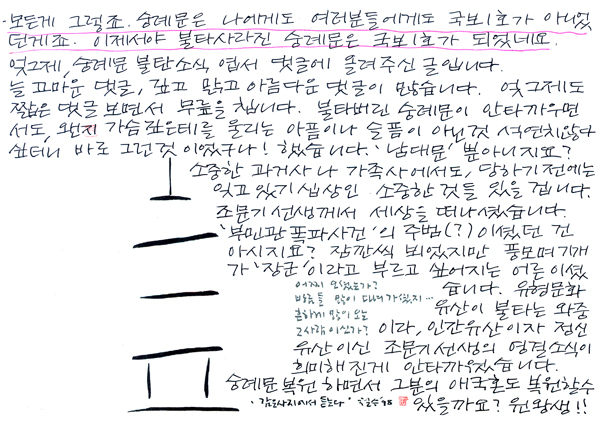 모든게 그렇죠. 숭례문은 나에게도 여러분들에게도 국보1호가 아니었
던게죠. 이제서야 불타사라진 숭례문은 국보1호가 되었네요.
엊그제, 숭례문 불탄소식 엽서 댓글에 올려주신 글입니다.
늘 고마운 댓글, 깊고 맑고 아름다운 댓글이 많습니다. 엊그제도
짧은 댓글 보면서 무릎을 칩니다. 불타버린 숭례문이 안타까우면
서도, 왠지 가슴깊은데를 울리는 아픔이나 슬픔이 아닌것 석연치않다
싶더니 바로 그런것 이었구나! 했습니다. '남대문' 뿐아니지요?
소중한 과거사나 가족사에서도, 당하기전에는
잊고있기 십상인 소중한것들 있을겝니다.
조문기선생께서 세상을 떠나셨습니다.
'부민관폭파사건'의 주범(?)이셨던 건
아시지요? 잠깐씩 뵈었지만 풍모며기개
가 '장군'이라고 부르고 싶어지는 어른이셨
습니다. 유형문화
유산이 불타는 와중
이라, 인간유산이자 정신
유산이신 조문기선생의 영결소식이
희미해진게 안타까웠습니다.
숭례문복원 하면서 그분의 애국혼도 복원할수
있을까요? 원왕생!!
어찌
바람들 많이 다녀가셨지...
흔하게 많이 오는
그사람이신가?